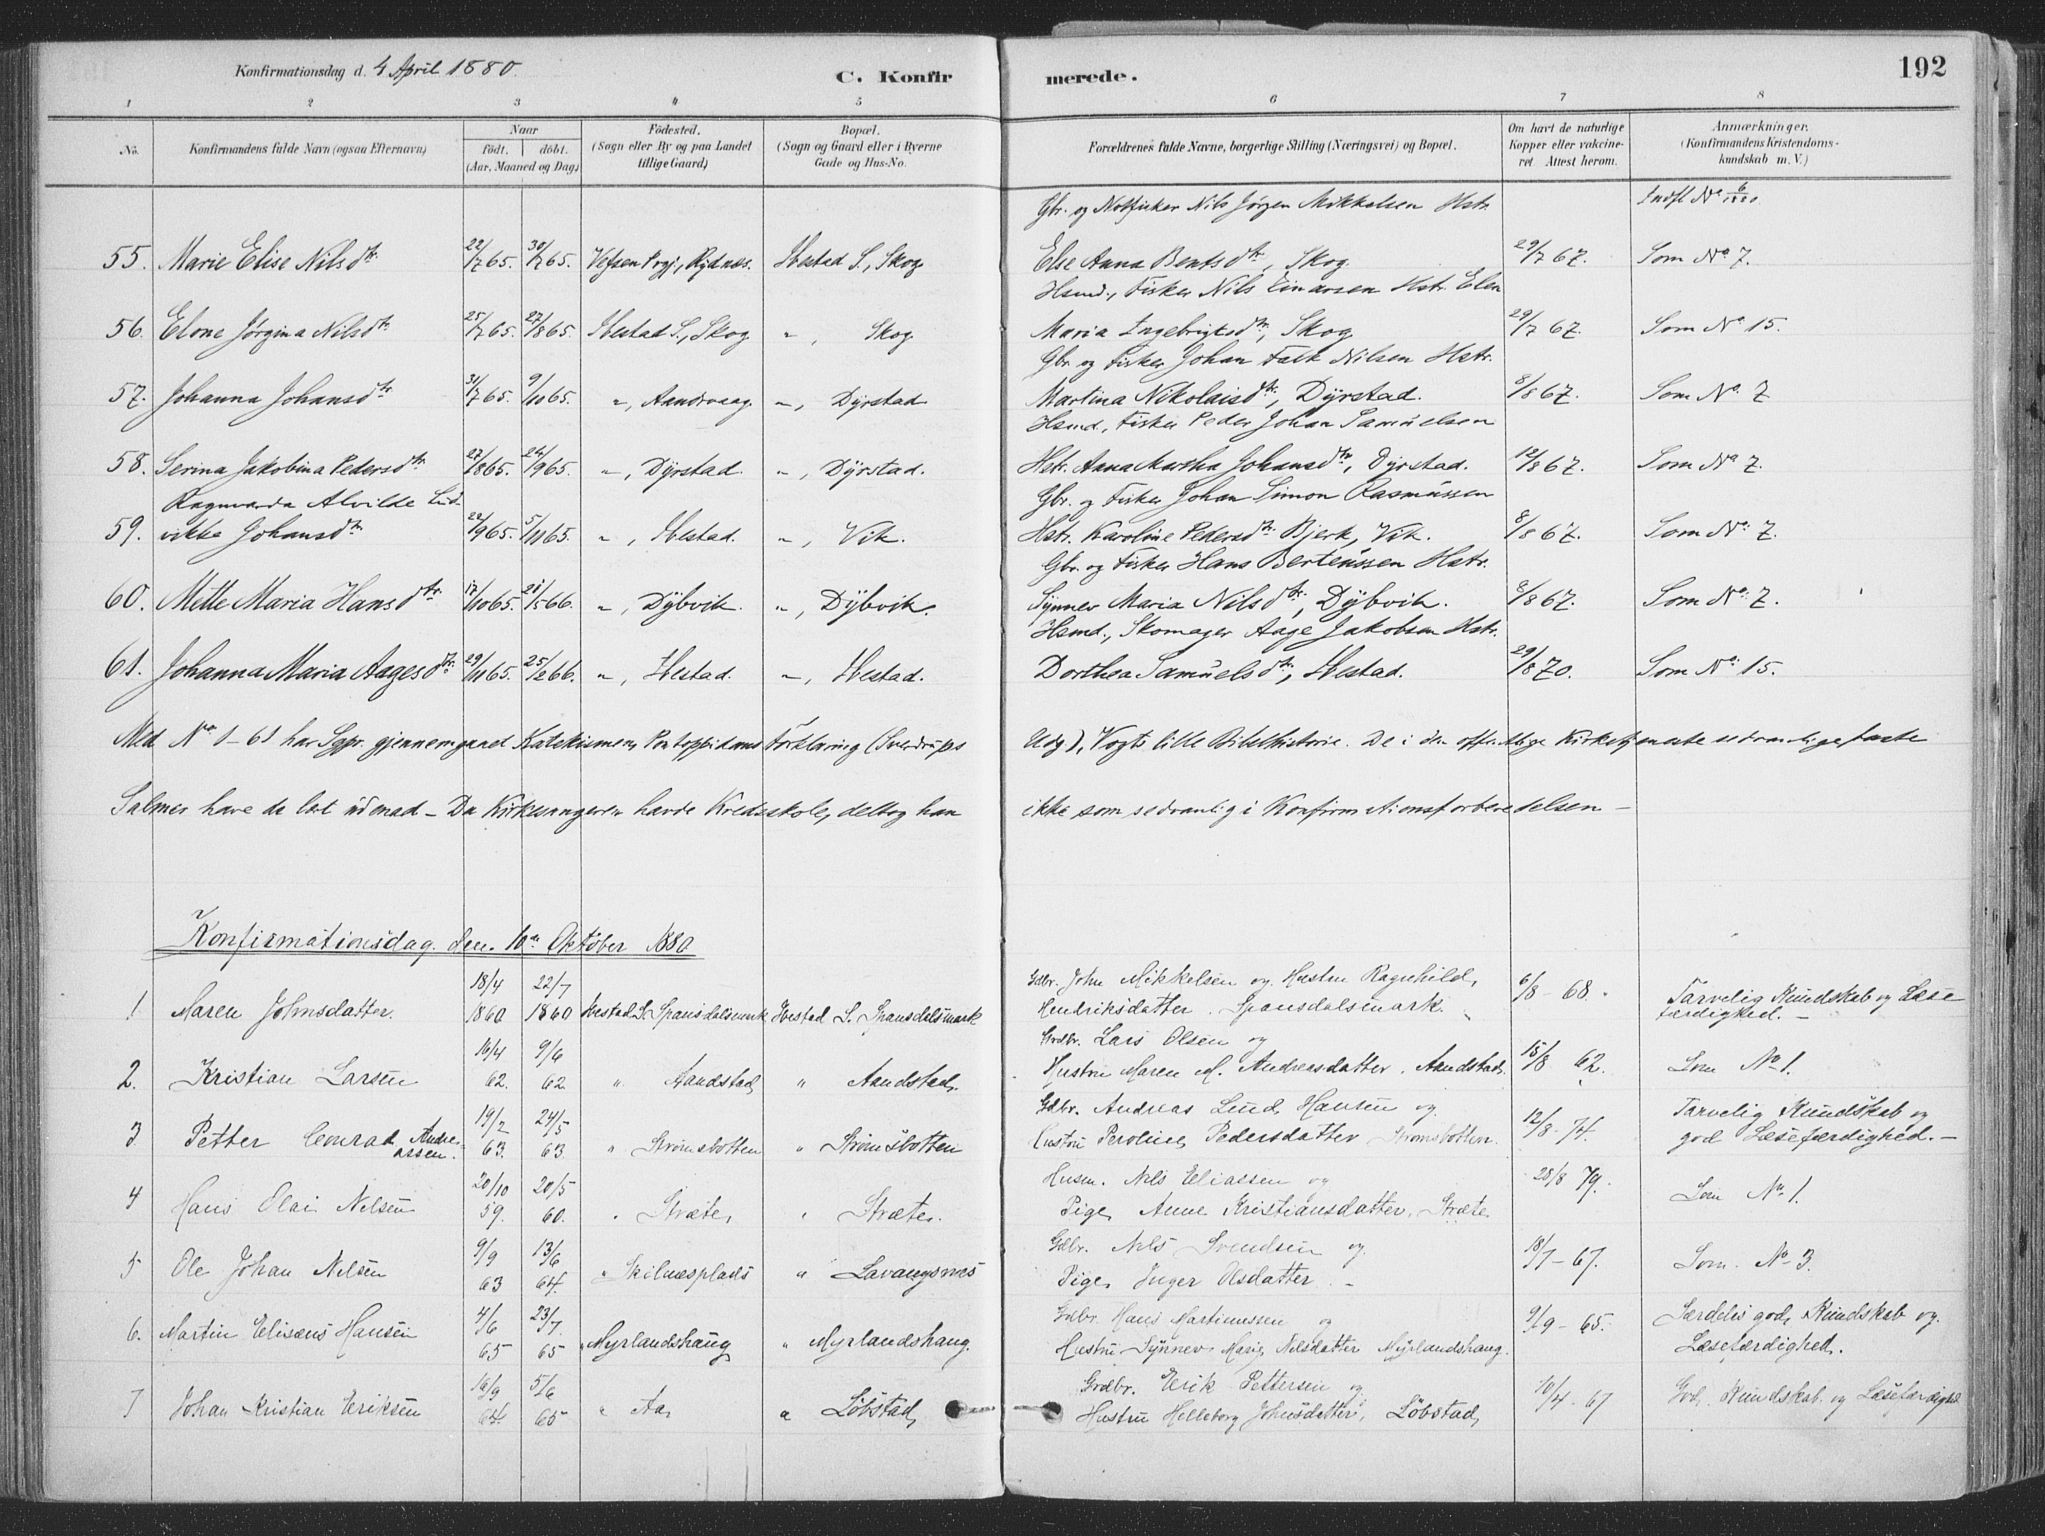 Konfirmationsdag d. 4 April 1880.
C. Konfirmerede.
192
1 2 3 4 5 6 7 8
No.
Konfirmandens fulde Navn (ogsaa Efternavn)
Naar
födt. döbt.
(Aar, Maaned og Dag)
Födested.
(Sogn eller By og paa Landet
tillige Gaard)
Bopæl.
(Sogn og Gaard eller i Byerne
Gade og Hus-No.
Forældrenes fulde Navne, borgerlige Stilling (Næringsvei) og Bopæl.
Om havt de naturlige
Kopper eller vakcine-
ret. Attest herom.
Anmærkninger.
(Konfirmandens Kristendoms-
kundskab m. V.)
Gbr. og Notfisker Nils Jörgen Mikkelsen Hstr.
Indfl No 6/1880.
55. Marie Elise Nilsdtr 22/7 65. 30/7 65. Vefsen Prgj., Rydnæs. Ibestad S., Skog Else Anna Bentsdtr, Skog. 29/7 67. Som No 7.
Hsmd., Fisker Nils Einarsen Hstr. Elen
56. Elone Jörgina Nilsdtr 25/7 65. 27/8 65. Ibestad S., Skog " , Skog Maria Ingebrigtsdtr, Skog 29/7 67. Som No 15.
Gbr. og Fisker Johan Falk Nilsen Hstr.
57. Johanna Johansdtr 31/7 65. 9/10 65. " , Aandervaag " , Dÿrstad Martina Nikolaisdtr, Dÿrstad. 8/8 67. Som No 7
Hsmd., Fisker Peder Johan Samuelsen
58. Serina Jakobina Pedersdtr 27/8 65. 24/9 65. " , Dÿrstad. " , Dÿrstad. Hstr. Anna Martha Johansdtr, Dÿrstad. 12/8 67. Som No 7.
Ragnvarda Alvilde Lud- Gbr. og Fisker Johan Simon Rasmüssen
59. vikke Johansdtr 22/9 65. 5/11 65. " , Ibestad. " , Vik. Hstr. Karoline Pedersdtr Bjerk, Vik. 8/8 67. Som No 7.
Gbr. og Fisker Hans Berteussen Hstr.
60. Mette Maria Hansdtr 17/10 65. 21/5 66. " , Dÿbvik. " , Dÿbvik. Synnev Maria Nilsdtr, Dÿbvik. 8/8 67. Som No 7.
Hsmd., Skomager Aage Jakobsen Hstr.
61. Johanna Maria Aagesdtr 29/11 65. 25/2 66. " , Ibestad. " , Ibestad. Dorthea Samuelsdtr, Ibestad. 29/8 70. Som No 15.
Med No 1-61 har Sgpr. gjennemgaaet Katekismen, Pontoppidans Forklaring (Sverdrups Udg), Vogts lille Bibelhistorie. De i den offentlige Kirketjeneste sedvanlige faste
Salmer have de lært udenad – Da Kirkesangeren havde Kredsskole, deltog han ikke som sedvanlig i Konfirmationsforberedelsen –
Konfirmationsdag den 10de Oktober 1880
18/4 22/7 Gdbr. John Mikkelsen og Hustru Ragnhild, 6/8 - 68.
1 Maren Johnsdatter. 1860 1860 Ibestad S. Spansdalsmark Ibestad S. Spansdalsmark Hendriksdatter. Spansdalsmark. Tarvelig Kundskab og Læse
færdighed. –
16/4 9/6 Grdbr. Lars Olsen og
2. Kristian Larsen 62. 62 " Aandstad " Aandstad. Hustru Maren M. Andreasdatter. Aandstad. 15/8 62. Som No 1.
19/2 24/5 Gdbr. Andreas Lind Hansen og
3 Petter Conrad Andre-
assen. 63. 63. " Strömsbotten " Strömsbotten Hustru Peroline Pedersdatter Strömsbotten. 12/8 - 74. Tarvelig Kundskab og
god Læsefærdighed. –
20/10 20/5 Husm. Nils Eliassen og 28/8 79.
4 Hans Olai Nelsen 59. 60. " Stræte, " Stræte. Pige Anne Kristiansdatter. Stræte Som No 1.
9/9 13/6 Gdbr. Nils Svendsen og
5 Ole Johan Nelsen 63 64. " Skilnæsplads " Lavangsnes Pige Inger Olsdatter. – 18/7 - 67. Som No 3.
4/6 23/7 Grdbr. Hans Martinussen og
6. Martin Elisæus Hansen 65 65 " Myrlandshaug " Myrlandshaug. Hustru Synnev Marie Nilsdatter Myrlandshaug. 9/9 - 65. Særdeles god Kundskab og
Læsefærdighed.
16/9 5/6 Grdbr. Erik Pettersen og
7 Johan Kristian Eriksen 64 65 " Aa, " Löbstad Hustru Helleborg Johnsdatter, Löbstad, 10/4 - 67 God Kundskab og Læsefærdighed